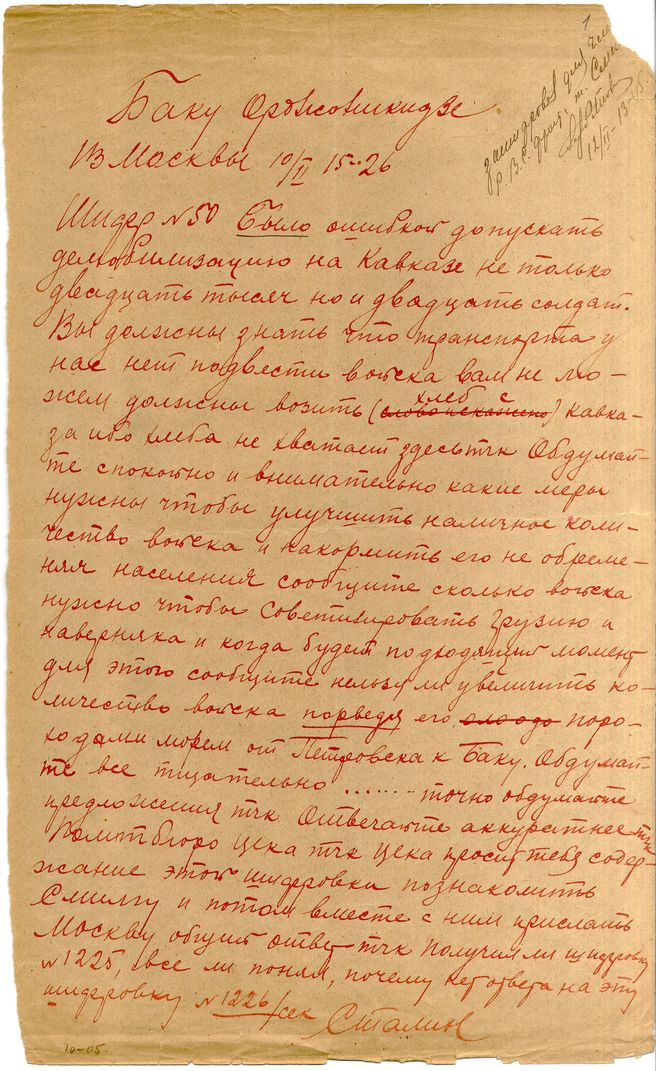 1
зашифрован для чле
Р.В.С. фрон. т. Сми
12/II-
Баку Орджоникидзе
Из Москвы 10/II 15-26
Шифр №50 Было ошибкой допускать
демобилизацию на Кавказе не только
двадцать тысяч но и двадцать солдат.
Вы должны знать что транспорта у
нас нет подвести войска вам не мо-
хлеб с
жем должны возить (слово искажено) кавка-
за ибо хлеба не хватает здесь тчк Обдумай-
те спокойно и внимательно какие меры
нужны чтобы улучшить наличное коли-
чество войска и накормить его не обреме-
няя населения сообщите сколько войска
нужно чтобы советизировать Грузию и
наверняка и когда будет подходящий момент
для этого сообщите нельзя ли увеличить ко-
личество войска порведя его паро-
ходами морем от Петровска к Баку. Обдумай-
те все тщательно ........ точно обдумайте
предложения тчк Отвечайте аккуратнее тчк
Политбюро цека тчк Цека просит тебя содер-
жание этой шифровки познакомить
Смилгу и потом вместе с ним прислать
Москву общий ответ тчк получил ли шифровку
№1225, все ли понял, почему нет ответа на эту
шифровку №1226/сек Сталин
10-05.